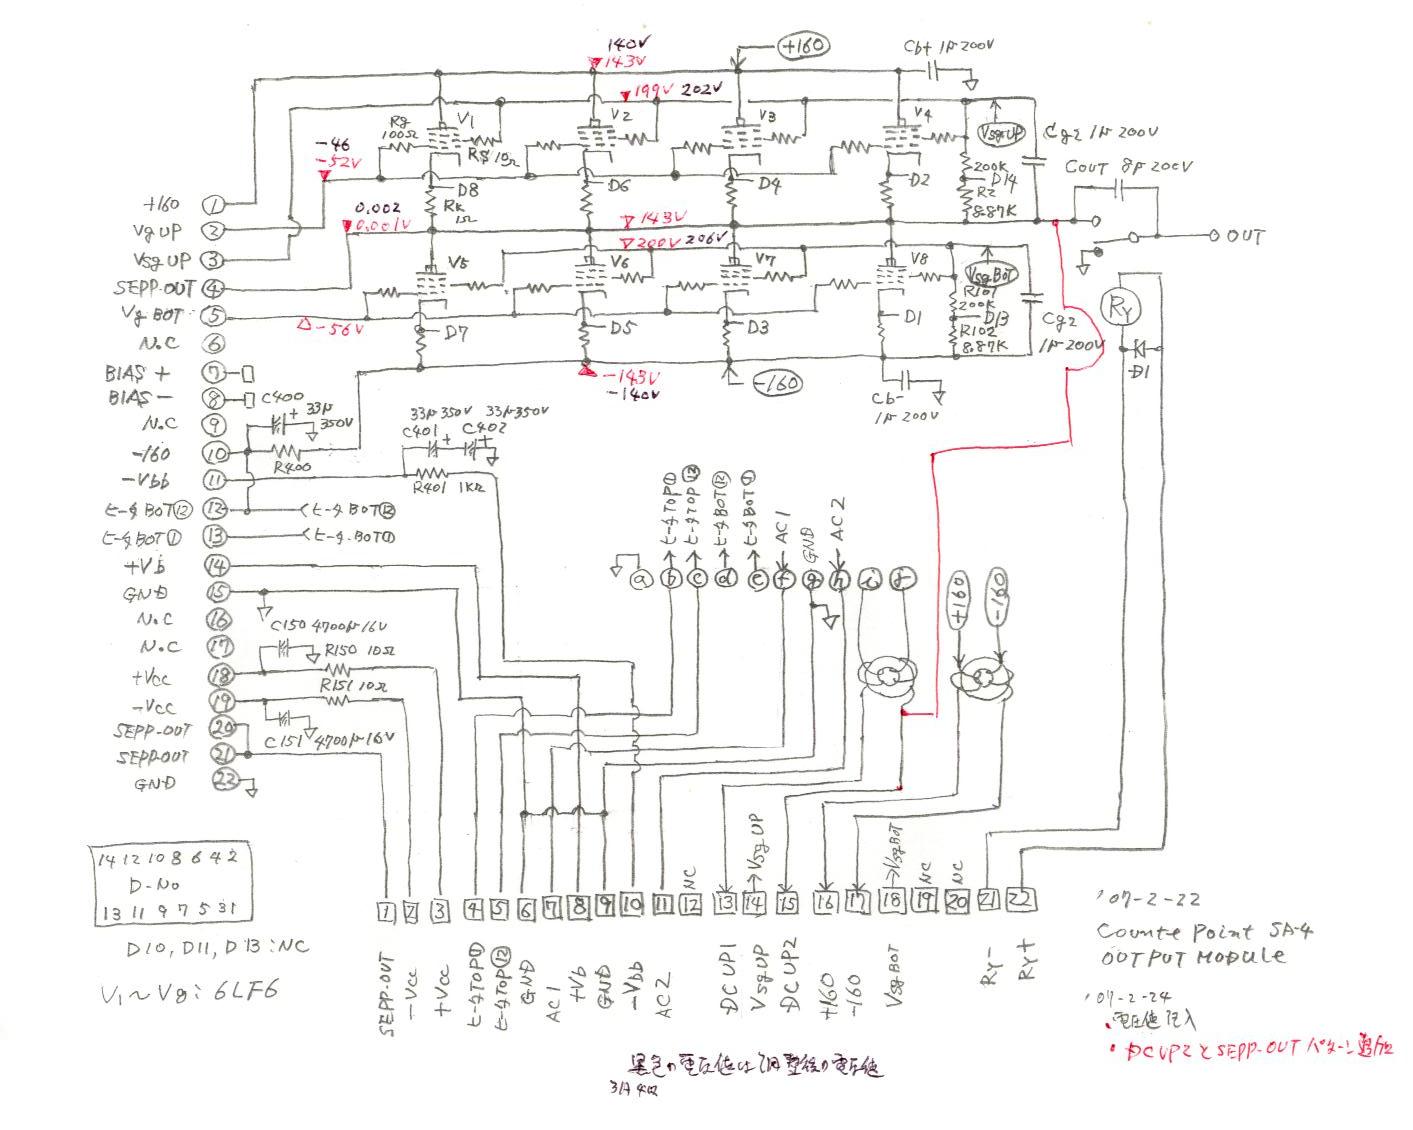 140V
143V
+160
Cb+ 1μ 200V
199V 202V
Rg
100Ω
V1
V2
V3
V4
Vsg UP
Cg2 1μ 200V
-46
-52V
RS 10Ω
200K
D14
R2
8.87K
COUT 8μ 200V
D8
D6
D4
D2
RK
1Ω
+160 1
Vg UP 2
Vsg UP 3
SEPP-OUT 4
Vg BOT 5
N.C 6
BIAS + 7
BIAS - 8
N.C 9
-160 10
-Vbb 11
ヒータBOT⑫ 12
ヒータBOT① 13
+Vb 14
GND 15
N.C 16
N.C 17
+Vcc 18
-Vcc 19
SEPP-OUT 20
SEPP-OUT 21
GND 22
0.002
0.001V
143V
200V 206V
OUT
V5
V6
V7
V8
Vsg BOT
R101
200K
D13
R102
8.87K
Cg2
1μ 200V
RY
D1
-56V
D7
D5
D3
D1
-143V
-140V
-160
Cb-
1μ 200V
C400
33μ
350V
R400
33μ 350V 33μ 350V
C401
C402
R401 1KΩ
ヒータBOT⑫
ヒータBOT①
ヒータTOP①
ヒータTOP⑫
ヒータBOT⑫
ヒータBOT①
AC1
GND
AC2
a b c d e f g h i j
+160
-160
C150 4700μ 16V
R150 10Ω
R151 10Ω
C151 4700μ 16V
14 12 10 8 6 4 2
D-No
13 11 9 7 5 3 1
D10, D11, D13 : NC
V1~V8 : 6LF6
NC
→Vsg UP
→Vsg BOT
NC
NC
1 2 3 4 5 6 7 8 9 10 11 12 13 14 15 16 17 18 19 20 21 22
SEPP-OUT
-Vcc
+Vcc
ヒータTOP①
ヒータTOP⑫
GND
AC1
+Vb
GND
-Vbb
AC2
DC UP1
Vsg UP
DC UP2
+160
-160
Vsg BOT
RY-
RY+
'07-2-22
Counte Point SA-4
OUTPUT MODULE
'07-2-24
・電圧値記入
・DCUP2とSEPP-OUTパターン追加
黒色の電圧値は調整後の電圧値
3月4日